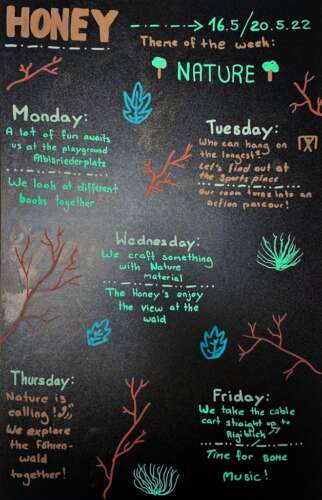 HONEY
16.5/20.5.22
Theme of the week:
NATURE
Monday:
A lot of fun awaits
us at the playground
Albisriederplatz
We look at different
books together
Tuesday:
Who can hang on
the longest?
Let's find out at
the sports place
Our room turns into an
action parcour!
Wednesday:
We craft something
with Nature
material
The Honey's enjoy
the view at the
wald
Thursday:
Nature is
calling!
We explore
the Föhren-
wald
together!
Friday:
We take the cable
cart straight up to
Rigiblick
Time for some
Music!